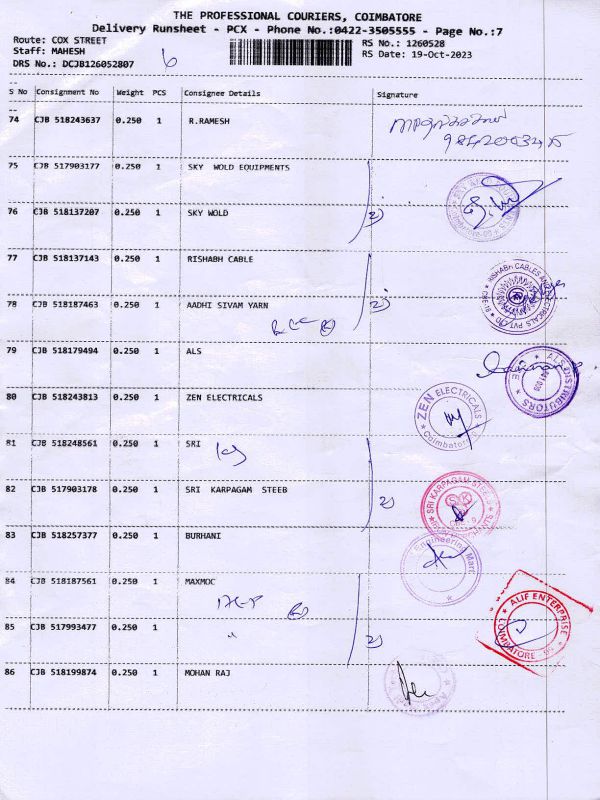 THE PROFESSIONAL COURIERS, COIMBATORE
Delivery Runsheet - PCX - Phone No.:0422-3505555 - Page No.:7
Route: COX STREET
RS No.: 1260528
Staff: MAHESH
RS Date: 19-Oct-2023
DRS No.: DCJB126052807
6
S No Consignment No Weight PCS Consignee Details Signature
74 CJB 518243637 0.250 1 R.RAMESH
75 CJB 517903177 0.250 1 SKY WOLD EQUIPMENTS
76 CJB 518137207 0.250 1 SKY WOLD
77 CJB 518137143 0.250 1 RISHABH CABLE
78 CJB 518187463 0.250 1 AADHI SIVAM YARN
79 CJB 518179494 0.250 1 ALS
ALS DISTRIBUTORS
80 CJB 518243813 0.250 1 ZEN ELECTRICALS
ZEN ELECTRICALS
Coimbatore
81 CJB 518248561 0.250 1 SRI
82 CJB 517903178 0.250 1 SRI KARPAGAM STEEB
SRI KARPAGAM
SKS
83 CJB 518257377 0.250 1 BURHANI
Engineering Mart
84 CJB 518187561 0.250 1 MAXMOC
ALIF ENTERPRISE
COIMBATORE
85 CJB 517993477 0.250 1 "
86 CJB 518199874 0.250 1 MOHAN RAJ